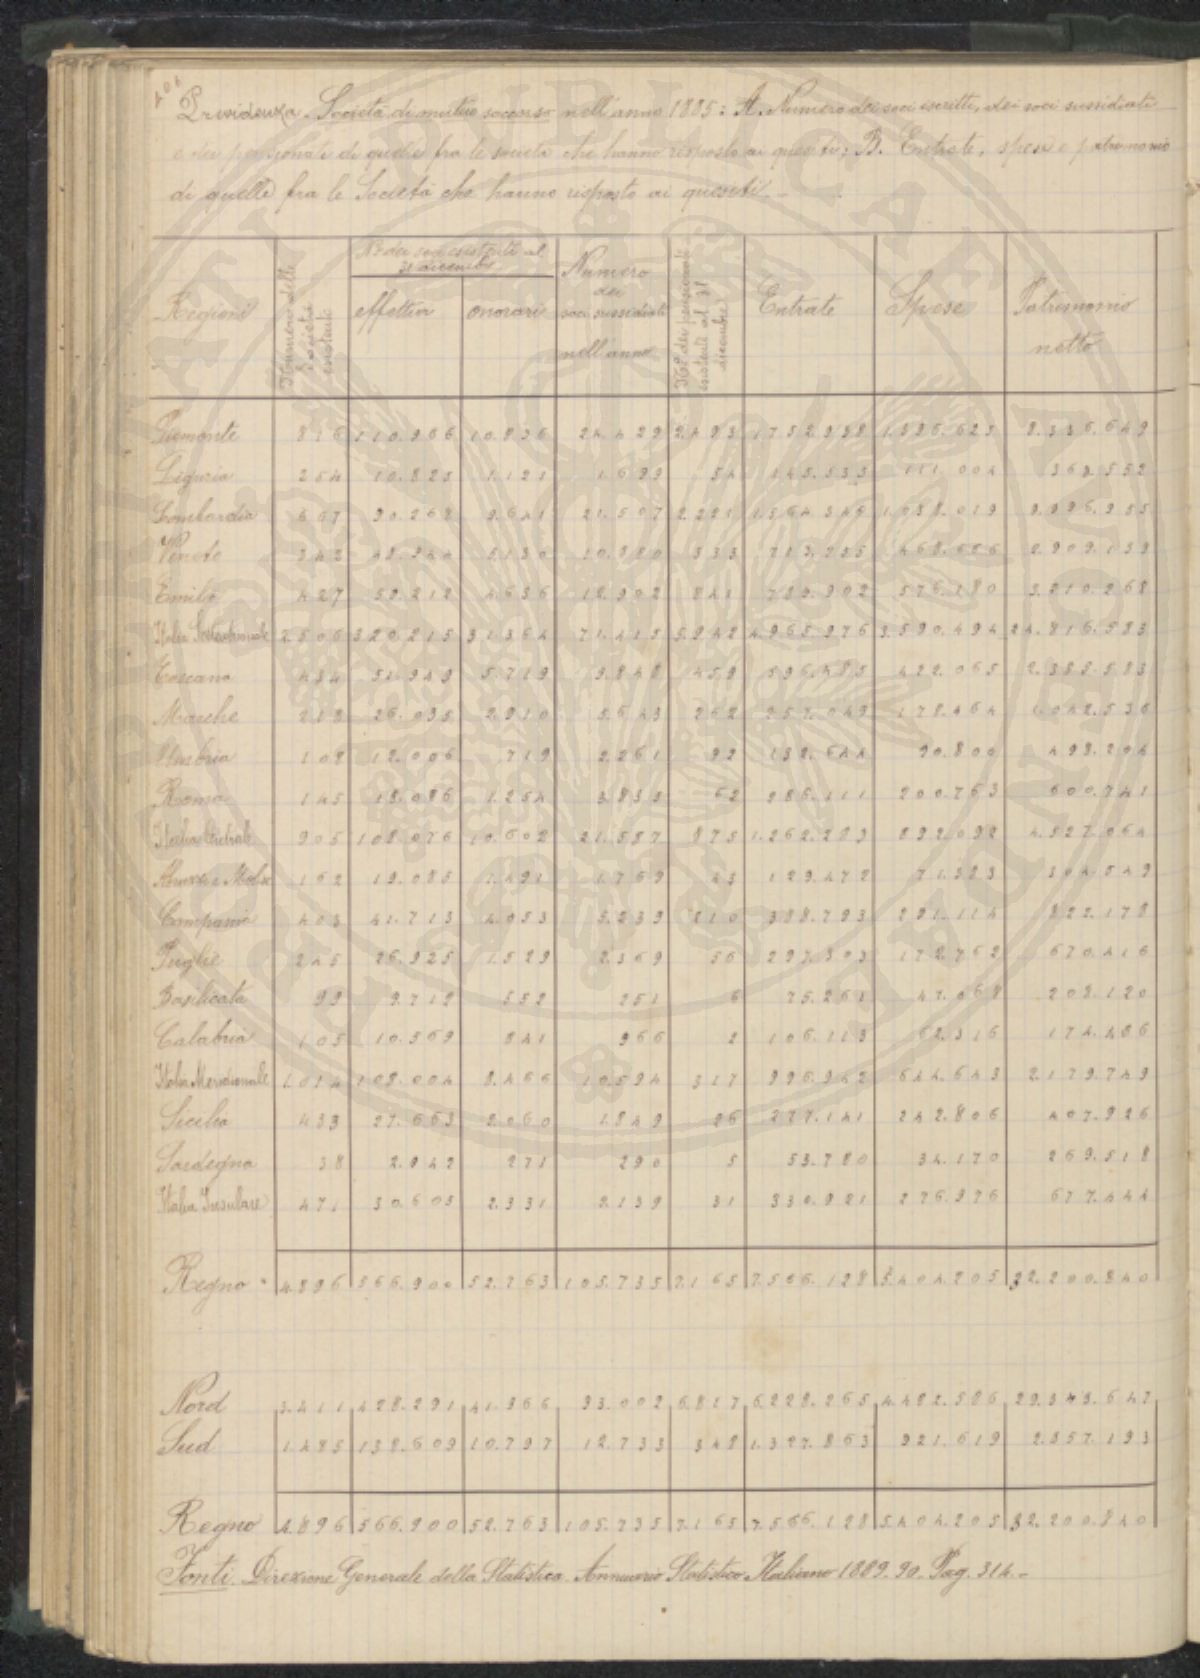 406
Previdenza. Società di mutuo soccorso nell'anno 1885: A. Numero dei soci iscritti, dei soci sussidiati
e dei pensionati di quelle fra le società che hanno risposto ai quesiti; B. Entrate, spese e patrimonio
di quelle fra le Società che hanno risposto ai quesiti. -
Regioni | Numero delle Società esistenti | N° dei soci esistenti al 31 dicembre effettivi | onorari | Numero dei soci sussidiati nell'anno | N° dei pensionati esistenti al 31 dicembre | Entrate | Spese | Patrimonio netto
Piemonte 816 110.966 10.836 24.429 2.493 1752938 1.396.625 8.336.649
Liguria 254 10.825 1.121 1.699 54 145.535 111.004 363.552
Lombardia 667 90.268 9.641 21.507 2.221 1.564.346 1.038.019 9.996.955
Veneto 342 5.130 10.880 333 713.255 468.666 2.909.139
Emilia 427 59.212 4.636 12.902 841 789.902 576.180 3.210.268
Italia Settentrionale 2.506 320.215 31.364 71.415 5.942 4.965.976 3.590.494 24.816.583
Toscana 434 51.949 5.719 9.848 459 596.485 422.065 2.388.583
Marche 218 26.035 2.910 5.643 262 257.049 178.464 1.042.536
Umbria 108 12.006 719 2.261 92 132.644 90.800 498.204
Roma 145 18.086 1.254 3.835 62 286.111 200.763 600.741
Italia Centrale 905 108.076 10.602 21.587 875 1.262.289 892.092 4.527.064
Abruzzi e Molise 162 19.085 1.491 1.769 43 129.472 71.383 304.549
Campania 403 41.713 4.053 5.239 210 388.793 291.114 822.178
Puglie 245 26.925 1.529 2.369 56 297.303 172.762 670.416
Basilicata 99 9.712 552 251 6 75.261 47.068 208.120
Calabria 105 10.569 841 966 2 106.113 62.316 174.486
Italia Meridionale 1.014 108.004 8.466 10.594 317 996.942 644.643 2.179.749
Sicilia 433 27.663 2.060 1.849 26 277.141 242.806 407.926
Sardegna 38 2.942 271 290 5 53.780 34.170 269.518
Italia Insulare 471 30.605 2.331 2.139 31 330.921 276.976 677.444
Regno 4.896 566.900 52.763 105.735 7.165 7.556.128 5.404.205 32.200.840
Nord 3.411 428.291 41.966 93.002 6.817 6.228.265 4.482.586 29.343.647
Sud 1.485 138.609 10.797 12.733 348 1.327.863 921.619 2.857.193
Regno 4.896 566.900 52.763 105.735 7.165 7.556.128 5.404.205 32.200.840
Fonti. Direzione Generale della Statistica. Annuario Statistico Italiano 1889.90. Pag. 314. -